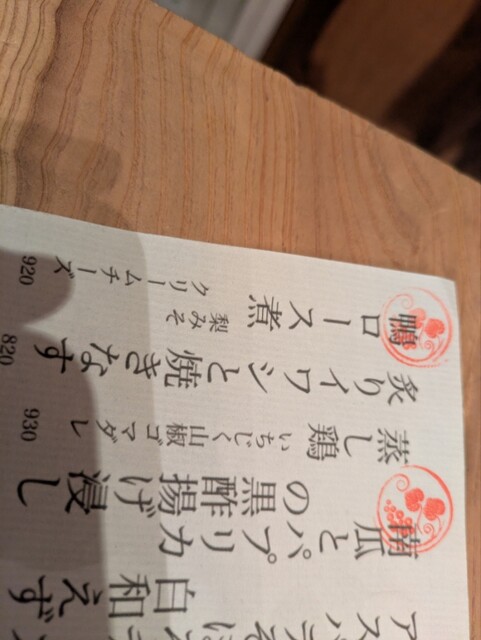 アスパラ
白和え
南瓜とパプリカ
の黒酢揚げ浸し
蒸し鶏 いちじく山椒ゴマダレ 930
炙りイワシと焼きなす 820
鴨ロース煮 梨みそ
クリームチーズ 920